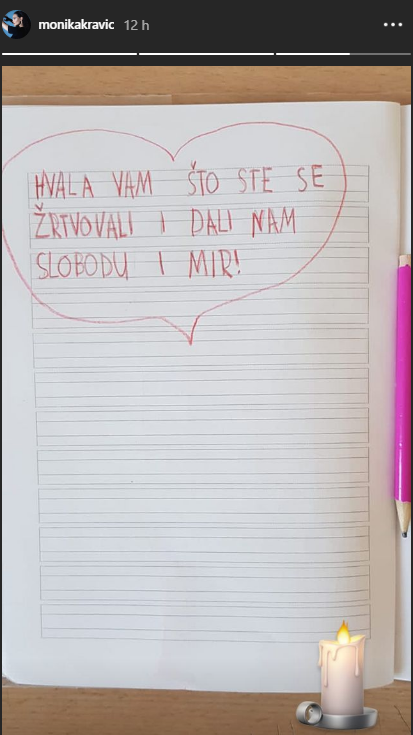 monikakravic 12 h
HVALA VAM ŠTO STE SE
ŽRTVOVALI I DALI NAM
SLOBODU I MIR!